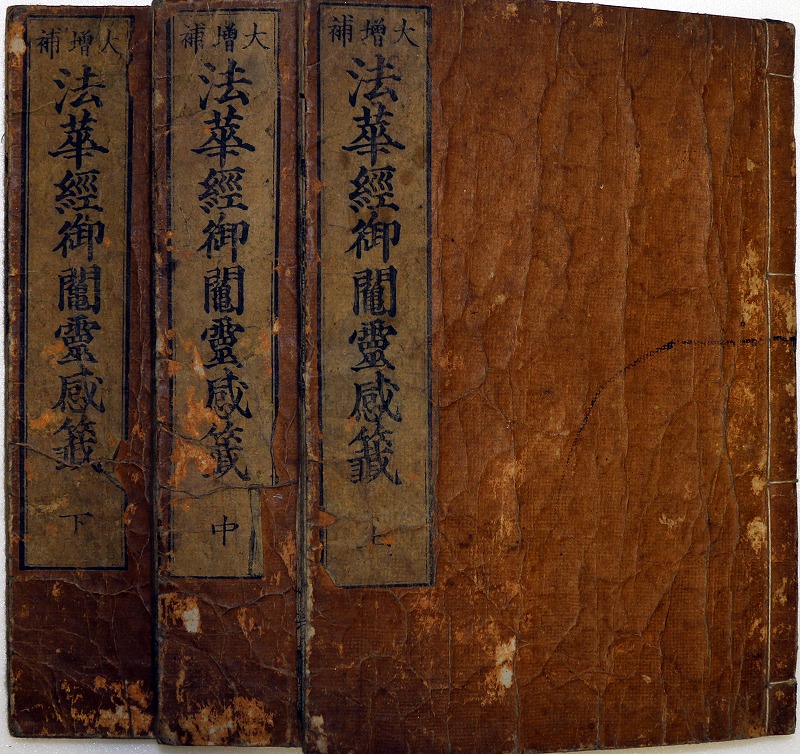 大增補
法華經御鬮靈感籤
上
大增補
法華經御鬮靈感籤
中
大增補
法華經御鬮靈感籤
下